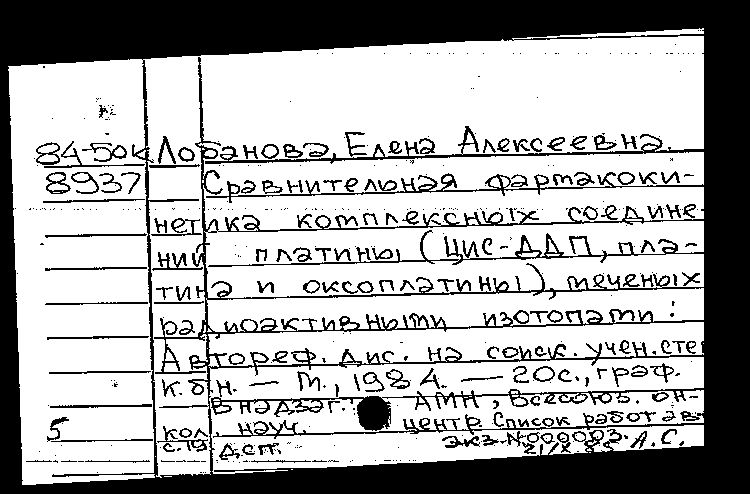 84-50к Лобанова, Елена Алексеевна.
8937 Сравнительная фармакоки-
нетика комплексных соедине-
ний платины (цис-ДДП, пла-
тина и оксоплатины), меченых
радиоактивными изотопами:
Автореф. дис. на соиск. учен. сте
к.б.н. — М., 1984. — 20с., граф.
В надзаг.: АМН, Всесоюз. он-
5 кол. науч. центр. Список работ ав-
с. 19 Дсп. экз. №000003. А.С.